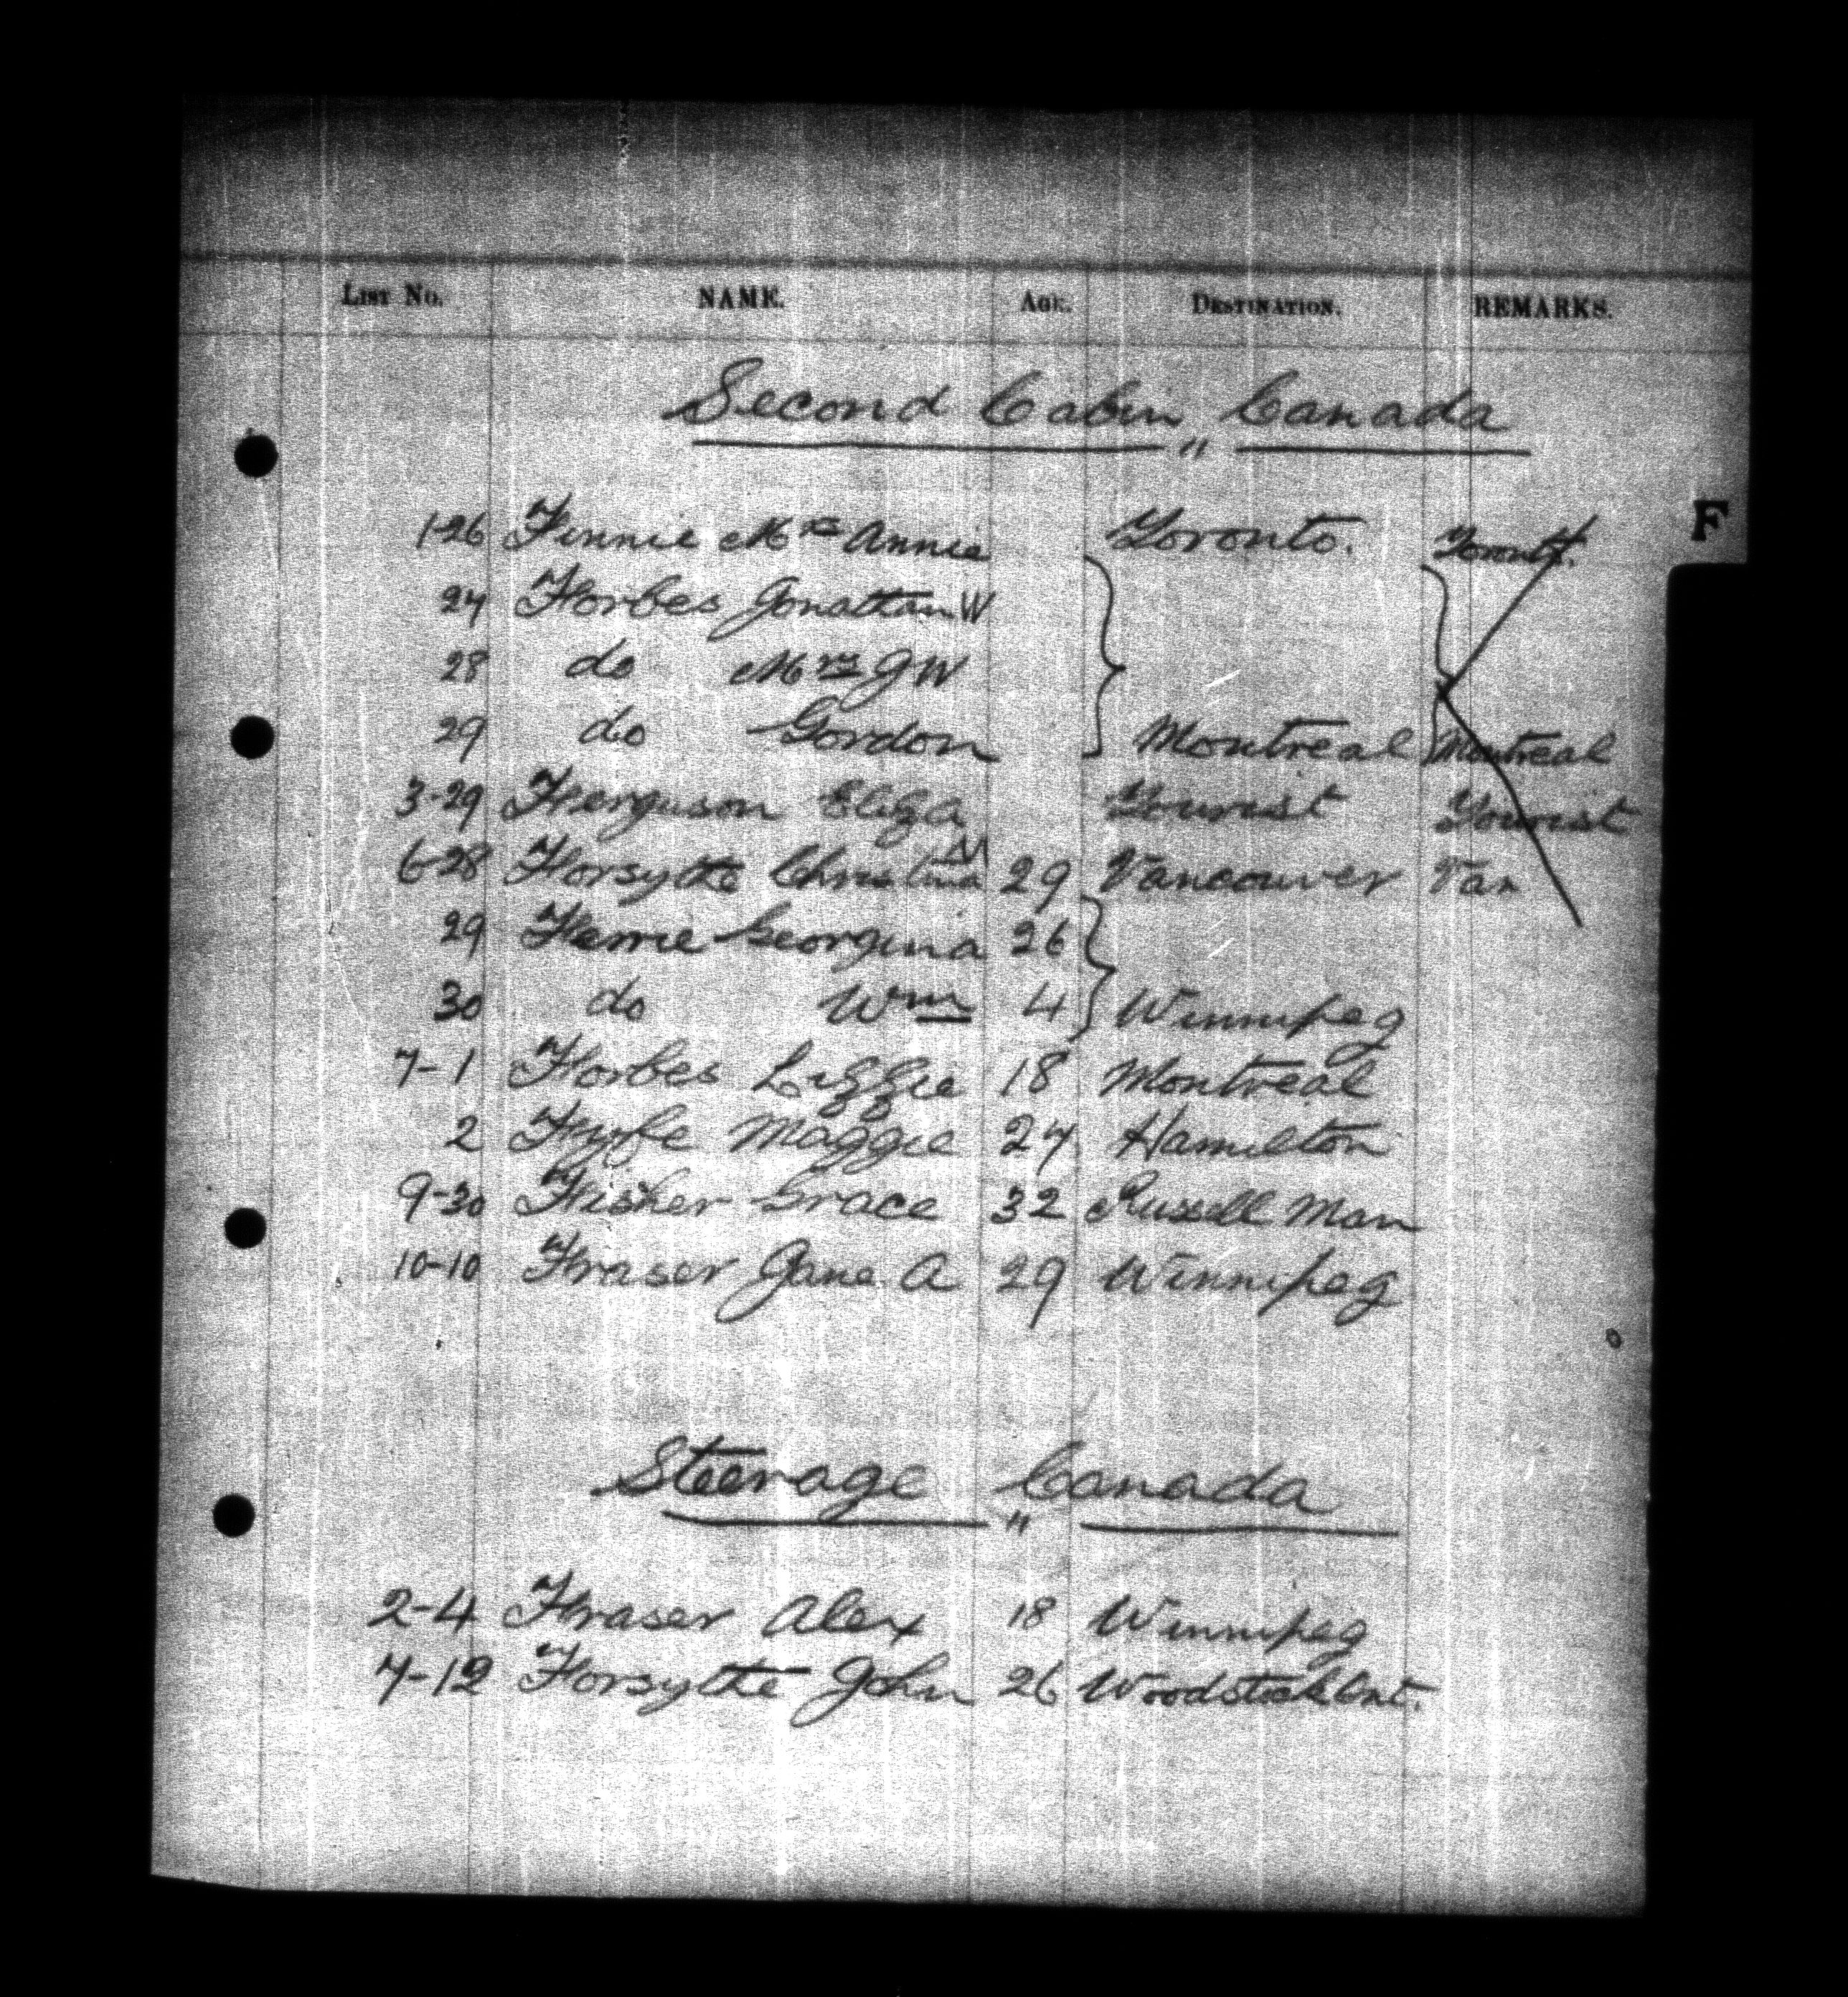 LIST NO. NAME. AGE. DESTINATION. REMARKS.
Second Cabin " Canada
F
1-26 Finnie Mrs Annie Toronto. Toronto.
27 Forbes Jonathan W
28 do Mrs J W
29 do Gordon Montreal Montreal
3-29 Ferguson Eliza Tourist Tourist
6-28 Forsythe Christina M 29 Vancouver Van
29 Ferrie Georgina 26
30 do Wm 4 Winnipeg
7-1 Forbes Lizzie 18 Montreal
2 Fyfe Maggie 27 Hamilton
9-30 Fisher Grace 32 Russell Man
10-10 Fraser Jane A 29 Winnipeg
Steerage " Canada
2-4 Fraser Alex 18 Winnipeg
7-12 Forsythe John 26 Woodstock Ont.